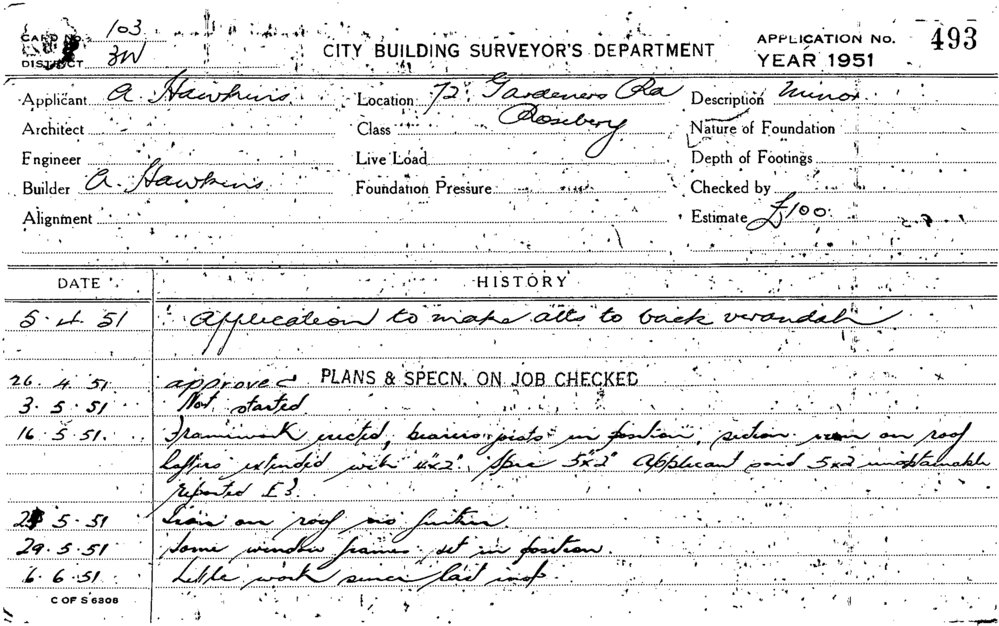 CARD No. 103
DISTRICT 3W
CITY BUILDING SURVEYOR'S DEPARTMENT
APPLICATION No. 493
YEAR 1951
Applicant A. Hawkins Location 72 Gardeners Rd Description Minor
Architect Class Rosebery Nature of Foundation
Engineer Live Load Depth of Footings
Builder A. Hawkins Foundation Pressure Checked by
Alignment Estimate £100
DATE HISTORY
5.4.51 Application to make alts to back verandah
26.4.51 approved PLANS & SPECN. ON JOB CHECKED
3.5.51 Not started
16.5.51 Framework erected, bearers joists in position, section iron on roof
Rafters extended with 4"x2" Spec 5"x2" Applicant said 5x2 unobtainable
reported
5.51 Iron on roof no further
29.5.51 Some window frames set in position.
6.6.51 Little work since last insp.
C OF S 6308